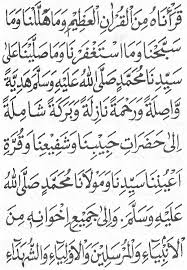 قَرَأْنَاهُ مِنَ الْقُرْآنِ الْعَظِيْمِ وَمَا هَلَّلْنَا وَمَا
سَبَّحْنَا وَمَا اسْتَغْفَرْنَا وَمَا صَلَّيْنَا عَلَى
سَيِّدِنَا مُحَمَّدٍ صَلَّى اللهُ عَلَيْهِ وَسَلَّمَ هَدِيَّةً
وَاصِلَةً وَرَحْمَةً نَازِلَةً وَبَرَكَةً شَامِلَةً
إِلَى حَضَرَاتِ حَبِيْبِنَا وَشَفِيْعِنَا وَقُرَّةِ
أَعْيُنِنَا سَيِّدِنَا وَمَوْلَانَا مُحَمَّدٍ صَلَّى اللهُ
عَلَيْهِ وَسَلَّمَ. وَإِلَى جَمِيْعِ إِخْوَانِهِ مِنَ
الْأَنْبِيَاءِ وَالْمُرْسَلِيْنَ وَالْأَوْلِيَاءِ وَالشُّهَدَاءِ